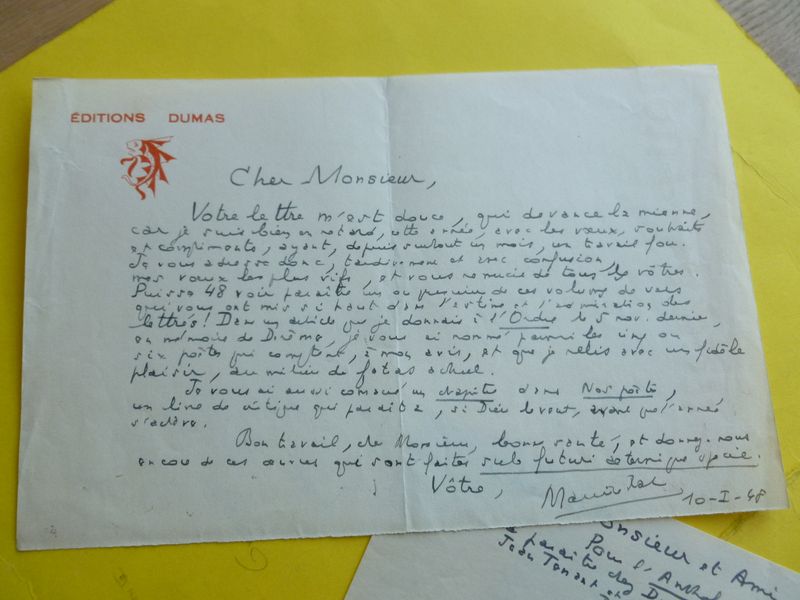 ÉDITIONS DUMAS
Cher Monsieur,
Votre lettre m'est douce, qui devance la mienne,
car je suis bien en retard, cette année, avec les vœux, souhaits
et compliments, ayant, depuis surtout un mois, un travail fou.
Je vous adresse donc, tardivement et avec confusion
mes vœux les plus vifs, et vous remercie de tous les vôtres.
Puisse 48 voir paraître un ou de ces volumes de vers
qui vous ont mis si haut dans l'estime et l'admiration des
lettrés! Dans un article que je donnais à l'Ordre le 5 nov. dernier,
en mémoire de Derème, je vous ai nommé parmi les cinq ou
six poètes qui comptent, à mon avis, et que je relis avec un fidèle
plaisir, au milieu du fatras actuel.
Je vous ai aussi consacré un chapitre dans Nos poètes,
un livre de critique qui paraîtra, si Dieu le veut, avant que l'année
s'achève.
Bon travail, cher Monsieur, bonne santé, et donnez-nous
encore de ces œuvres qui sont faites
Vôtre,
10-I-48
Monsieur et Ami
Pour l'
paraître chez D
Jean Tenant et